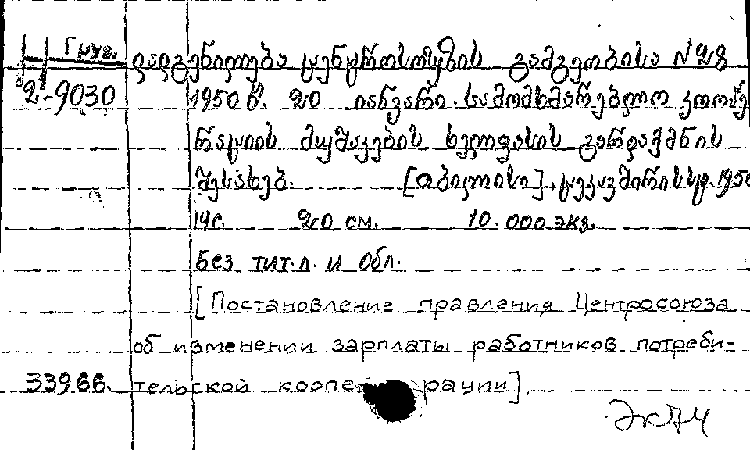 Груз.
დადგენილება ცენტროსოუზის გამგეობისა N 28
2-9030 1950 წ. 20 იანვარი. სამომხმარებლო კოოპე
რაციის მუშაკების ხელფასის გარდაქმნის
შესახებ. [თბილისი], ტეკავშირის სტ. 1950
14с 20 см. 10.000 экз.
Без тит.л. и обл.
[Постановление правления Центросоюза
об изменении зарплаты работников потреби-
33966. тельской коопе рации]